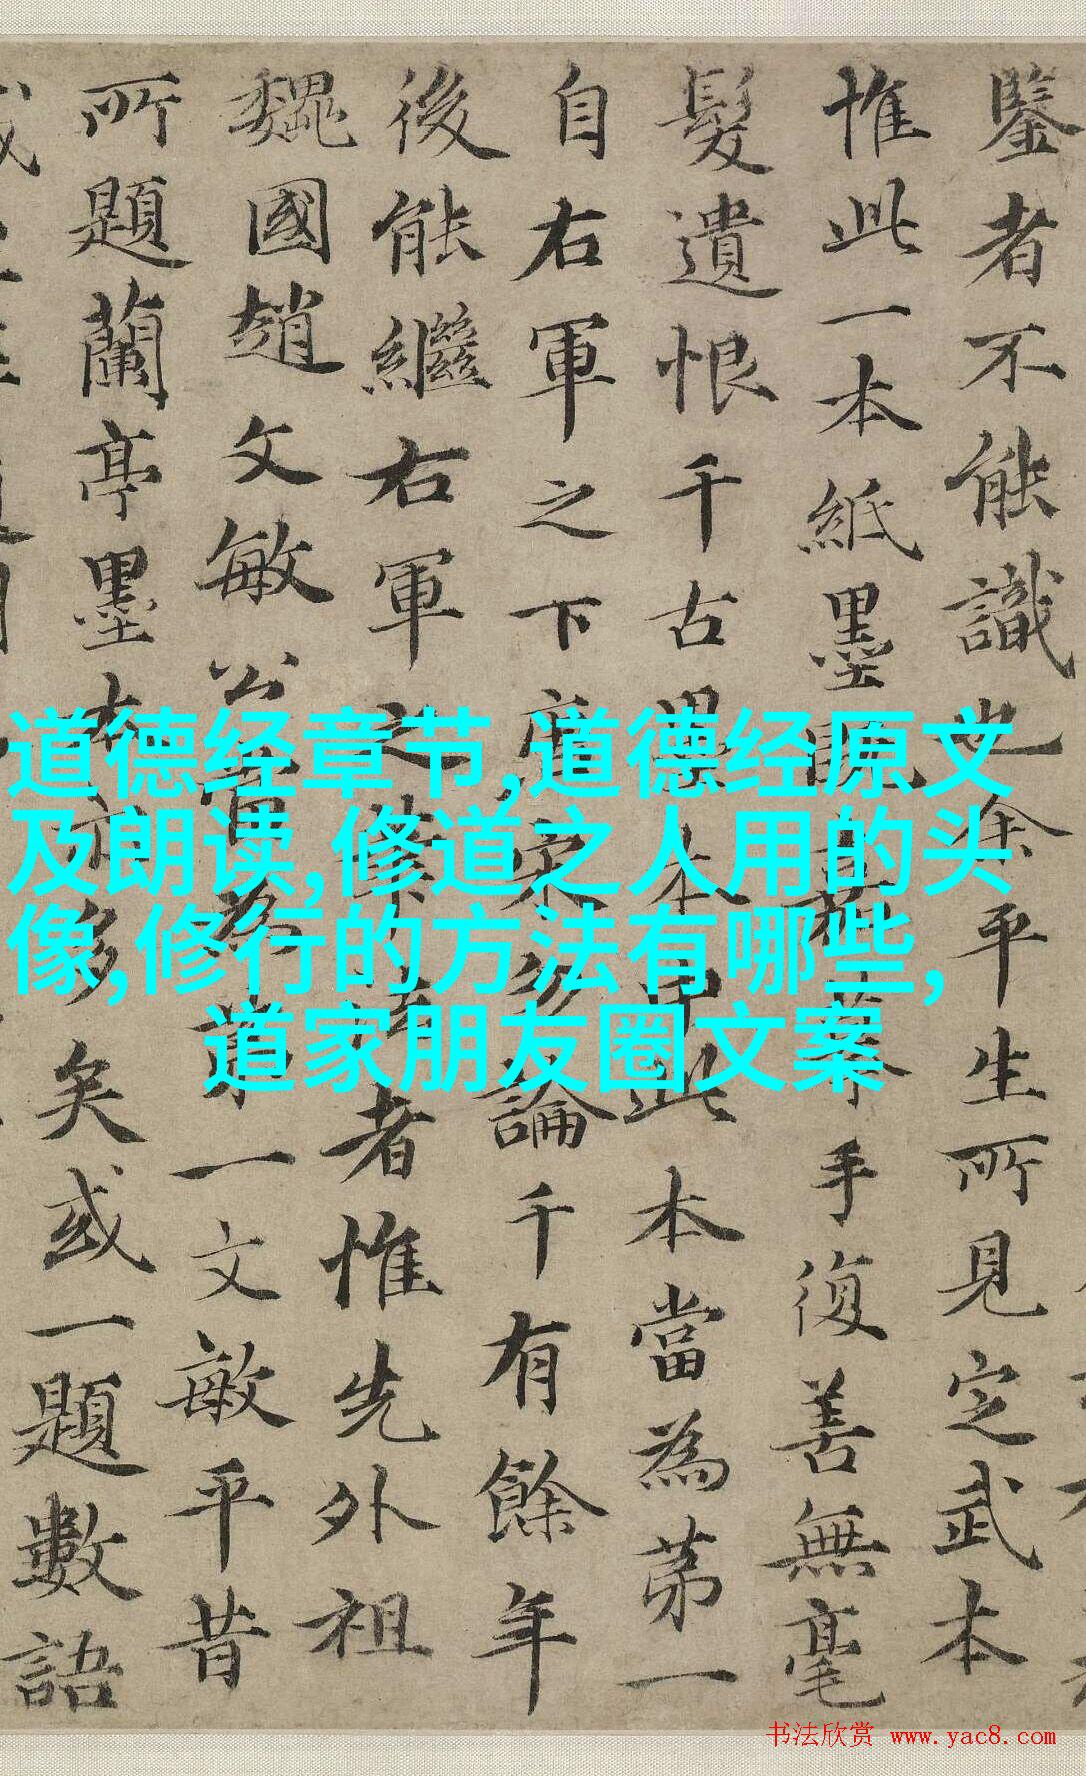 鑒者不能識也余平生所見定武本
惟此一本紙墨既蔡手復善無毫
髮遺恨千古墨本此本當為第一
自右軍之下唐宋多論千有餘年
後能繼右軍之者惟先外祖
魏國趙文敏公當為第一文敏平昔
所題蘭亭墨本亦多矣或一題數語
道德经章节,道德经原文
及朗读,修道之人用的头
像,修行的方法有哪些,
道家朋友圈文案
书法欣赏 www.yac8.com